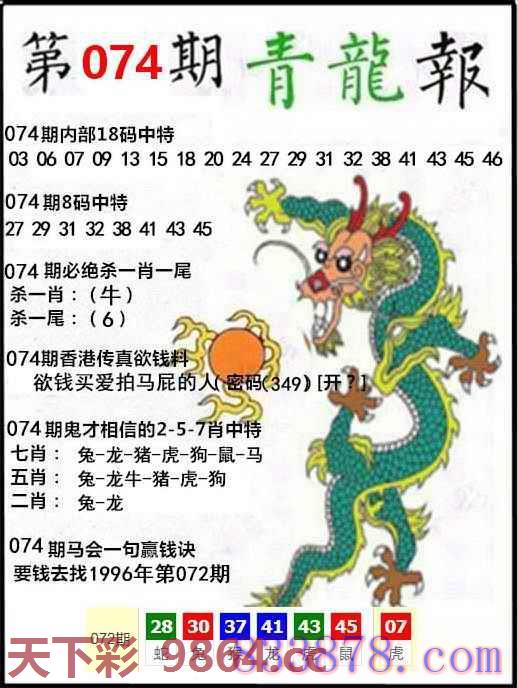 第074期青龍報
074期内部18码中特
03 06 07 09 13 15 18 20 24 27 29 31 32 38 41 43 45 46
074期8码中特
27 29 31 32 38 41 43 45
074期必绝杀一肖一尾
杀一肖：（牛）
杀一尾：（6）
074期香港传真欲钱料
欲钱买爱拍马屁的人(密码(349) [开？]
074期鬼才相信的2-5-7肖中特
七肖： 兔-龙-猪-虎-狗-鼠-马
五肖： 兔-龙牛-猪-虎-狗
二肖： 兔-龙
074期马会一句赢钱诀
要钱去找1996年第072期
072期 28 30 37 41 43 45 07
蛇 兔 猴 龙 虎 鼠 虎
天下彩 9864.cc